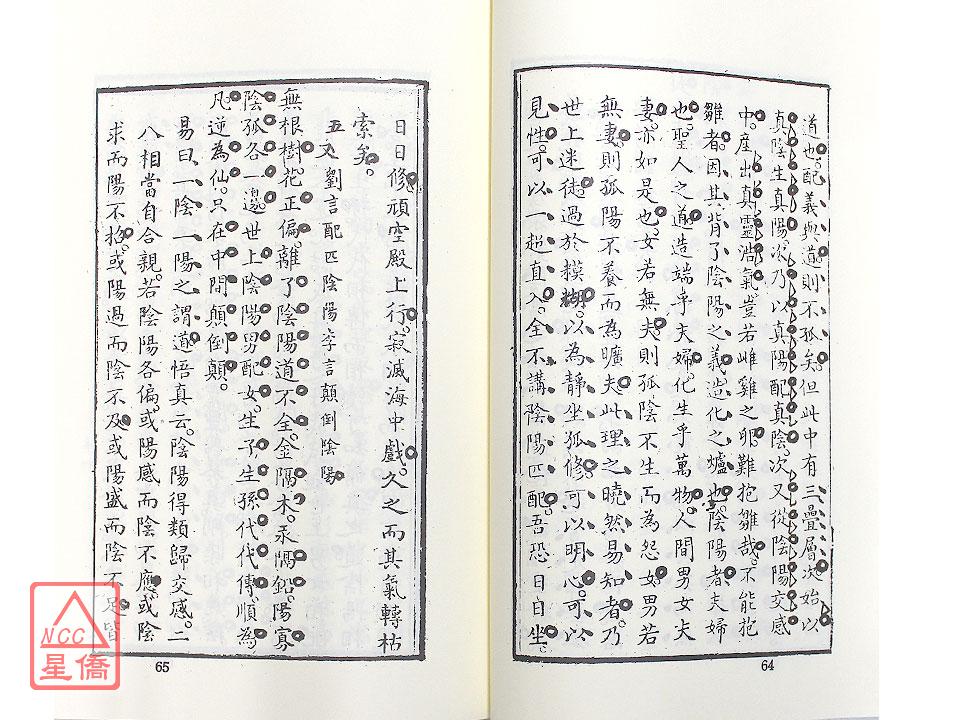 道也。配義與道則不孤矣。但此中有三疊層次。始以
真陰生真陽。次乃以真陽配真陰。次又從陰陽交感
中。產出真靈浩氣。豈若雌雞之卵。難抱雛哉。不能抱
雛者。因其背了陰陽之義。造化之爐也。陰陽者。夫婦
也。聖人之道。造端乎夫婦。化生乎萬物。人間男女夫
妻。亦如是也。女若無夫。則孤陰不生而為怨女。男若
無妻。則孤陽不養而為曠夫。此理之曉然易知者。乃
世上迷徒過於模糊。以為靜坐孤修。可以明心。可以
見性。可以一超直入。全不講陰陽匹配。吾恐日日坐。
64
日日修。頑空殿上行。寂滅海中戲。久之而其氣轉枯
索矣。
五 劉言配匹陰陽李言顛倒陰陽
無根樹。花正偏。離了陰陽道不全。金隔木。汞隔鉛。陽寡
陰孤各一邊。世上陰陽男配女。生子生孫代代傳。順為
凡。逆為仙。只在中間顛倒顛。
易曰。一陰一陽之謂道。悟真云。陰陽得類歸交感。二
八相當自合親。若陰陽各偏。或陽感而陰不應。或陰
求而陽不招。或陽過而陰不及。或陽盛而陰不足。皆
65
NCC
星僑